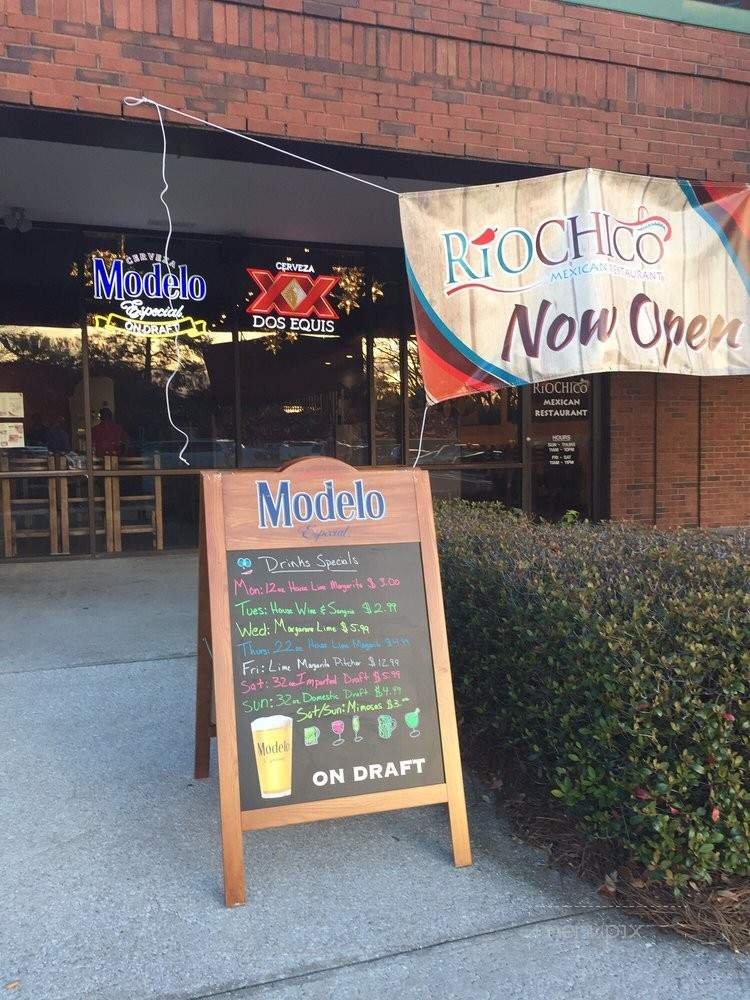 CERVEZA
Modelo
Especial
ON DRAFT
CERVEZA
XX
DOS EQUIS
RíOCHICO
MEXICAN RESTAURANT
Now Open
RíOCHICO
MEXICAN
RESTAURANT
HOURS
SUN - THURS
11AM - 10PM
FRI - SAT
11AM - 11PM
Modelo
Especial
Drinks Specials
Mon: 12oz House Lime Margarita $3.00
Tues: House Wine & Sangria $2.99
Wed: Lime $5.99
Thurs: 22oz House Lime Margarita $4.99
Fri: Lime Margarita Pitcher $12.99
Sat: 32oz Imported Draft $5.99
Sun: 32oz Domestic Draft $4.99
Sat/Sun: Mimosas $3.00
Modelo
Especial
ON DRAFT
menupix